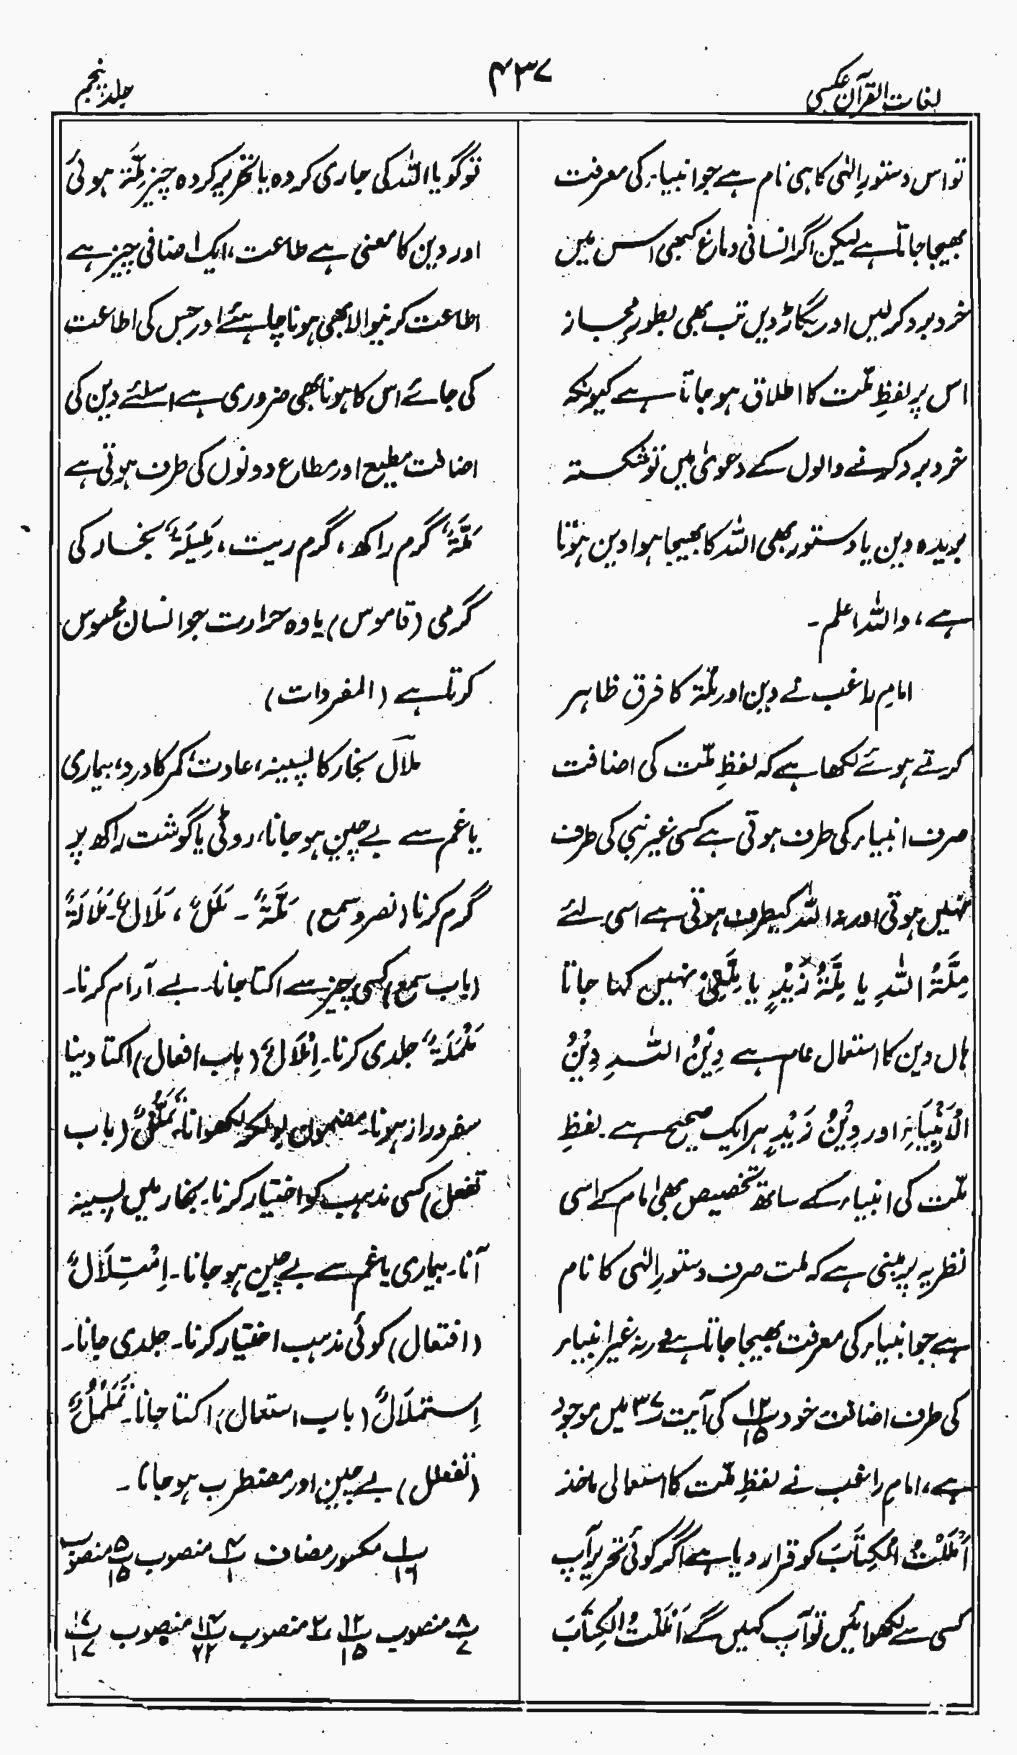 لغات القرآن عکسی
۴۳۷
جلد پنجم
تو اس دستورِ الٰہی کا ہی نام ہے جو انبیاء کی معرفت
بھیجا جاتا ہے لیکن اگر انسانی دماغ کبھی اس میں
خرد برد کر لیں اور بگاڑ دیں تب بھی بطورِ مجاز
اس پر لفظِ ملّت کا اطلاق ہو جاتا ہے کیونکہ
خرد برد کرنے والوں کے دعویٰ میں تو شکستہ
بریدہ دین یا دستور بھی اللہ کا بھیجا ہوا دین ہوتا
ہے، واللہ اعلم۔
امام راغب نے دین اور ملّۃ کا فرق ظاہر
کرتے ہوئے لکھا ہے کہ لفظِ ملّت کی اضافت
صرف انبیاء کی طرف ہوتی ہے کسی غیر نبی کی طرف
نہیں ہوتی اور نہ اللہ کیطرف ہوتی ہے اسی لئے
مِلَّۃُ اللّٰہِ یا مِلَّۃُ زَیْدٍ یا مِلَّتِیْ نہیں کہا جاتا
ہاں دین کا استعمال عام ہے دِیْنُ اللّٰہِ دِیْنُ
الْاَنْبِیَآءِ اور دِیْنُ زَیْدٍ ہر ایک صحیح ہے۔ لفظِ
ملّت کی انبیاء کے ساتھ تخصیص بھی امام کے اسی
نظریہ پر مبنی ہے کہ ملت صرف دستورِ الٰہی کا نام
ہے جو انبیاء کی معرفت بھیجا جاتا ہے ورنہ غیر انبیاء
کی طرف اضافت خود پ۱۲ ۱۵ کی آیت ۳۷ میں موجود
ہے، امام راغب نے لفظِ ملّت کا استعمالی ماخذ
اَمْلَلْتُ الْکِتَابَ کو قرار دیا ہے اگر کوئی تحریر آپ
کسی سے لکھوائیں تو آپ کہیں گے اَمْلَلْتُ الْکِتٰبَ
تو گویا اللہ کی جاری کردہ یا تحریر کردہ چیز مِلَّۃ ہوئی
اور دین کا معنی ہے طاعت، ایک اضافی چیز ہے
اطاعت کرنیوالا بھی ہونا چاہئے اور جس کی اطاعت
کی جائے اس کا ہونا بھی ضروری ہے اسلئے دین کی
اضافت مطیع اور مطاع دونوں کی طرف ہوتی ہے
مَلَّۃٌ گرم راکھ، گرم ریت، مَلِیْلَۃٌ بخار کی
گرمی (قاموس) یا وہ حرارت جو انسان محسوس
کرتا ہے (المفردات)
ملاَل بخار کا پسینہ، عادت، کمر کا درد، بیماری
یا غم سے بے چین ہو جانا، روٹی یا گوشت راکھ پر
گرم کرنا (نصر و سمع) مَلَّۃٌ۔ مَلَلٌ، مَلَالٌ۔ مَلَالَۃٌ
(باب سمع) کسی چیز سے اکتا جانا۔ بے آرام کرنا۔
مَلْمَلَۃٌ جلدی کرنا۔ اِمْلَالٌ (باب افعال) اکتا دینا
سفر دراز ہونا۔ مضمون بولکر لکھوانا۔ تَمَلُّلٌ (باب
تفعل) کسی مذہب کو اختیار کرنا۔ بخار میں پسینہ
آنا۔ بیماری یا غم سے بے چین ہو جانا۔ اِمْتِلَالٌ
(افتعال) کوئی مذہب اختیار کرنا۔ جلدی جانا۔
اِسْتِمْلَالٌ (باب استعفال) اکتا جانا۔ تَمَلْمُلٌ
(تفعلل) بے چین اور مضطرب ہو جانا۔
پ۱ ۱۶ مکسور مضاف پ۴ ۱ منصوب پ۵ ۱۵ منصوب
پ۸ ۷ منصوب پ۱۲ ۱۵ ۲ منصوب پ۱۴ ۲۲ منصوب پ۱۷ ۱۷